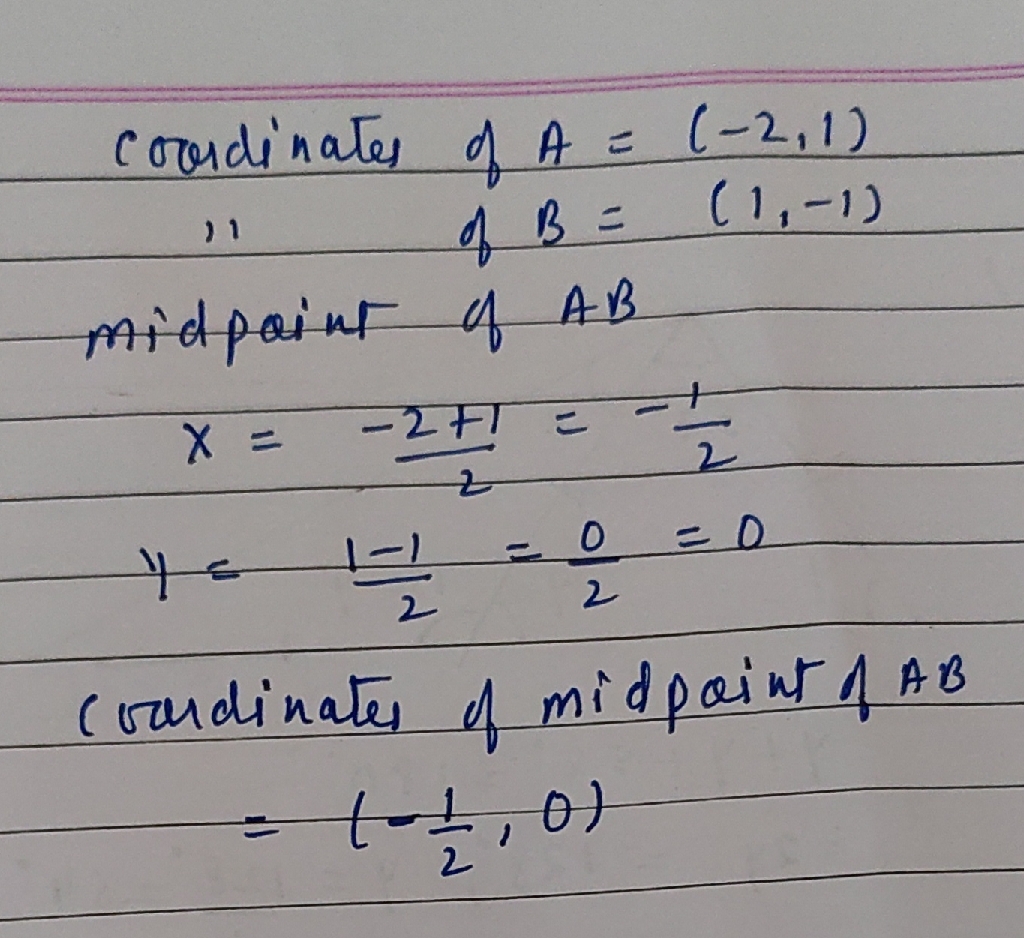 coordinates of A = (-2,1)
" of B = (1,-1)
midpoint of AB
X = -2+1/2 = -1/2
y = 1-1/2 = 0/2 = 0
coordinates of midpoint of AB
= (-1/2, 0)